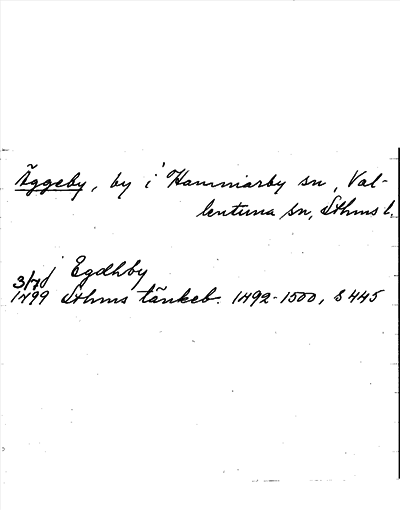 Äggeby, by i Hammarby sn, Val-
lentuna sn, Sthms l.
i Egdhby
1499 Sthms tänkeb. 1492-1500, s 445